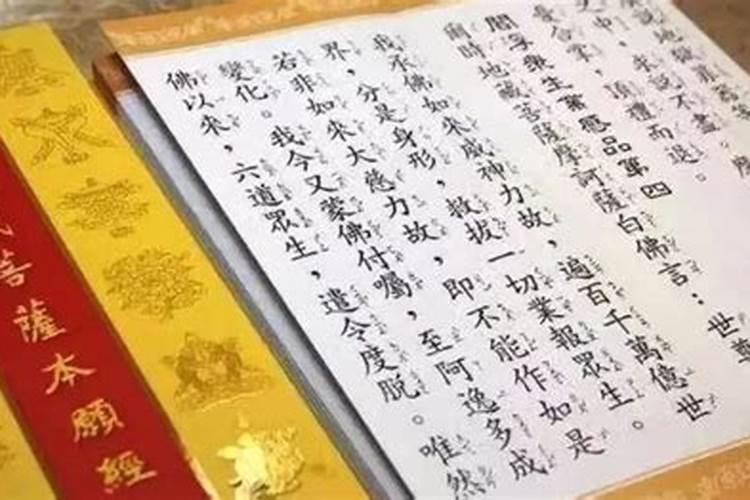 說地獄罪器等
中，求說不盡。摩
憂合掌，頂禮而退。
閻浮眾生業感品第四
爾時地藏菩薩摩訶薩白佛言：世尊
我承佛如來威神力故，遍百千萬億世
界，分是身形，救拔一切業報眾生。
若非如來大慈力故，即不能作如是
變化。我今又蒙佛付囑，至阿逸多成
佛以來，六道眾生，遣令度脫。唯然
菩薩本願經